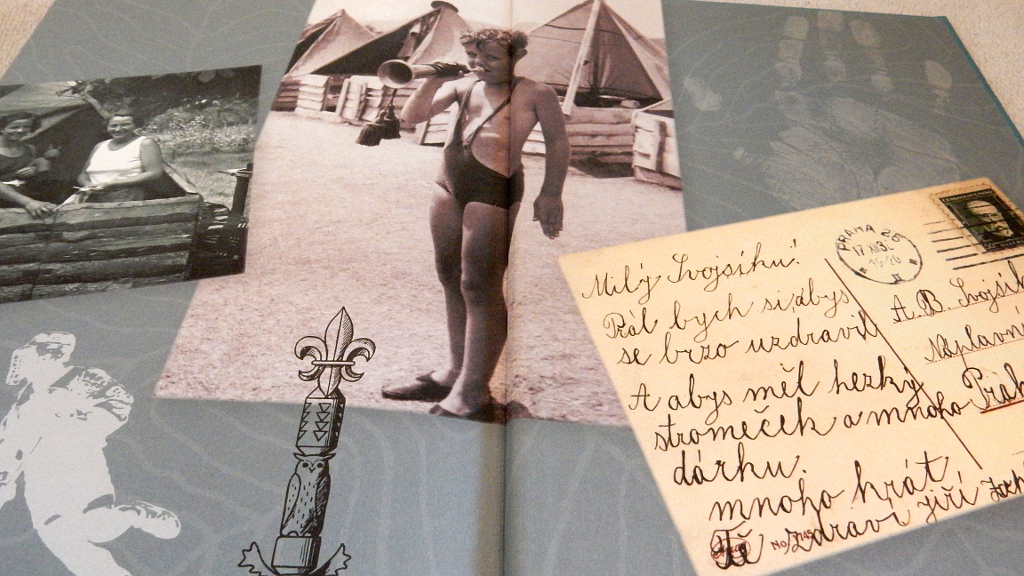 PRAHA 25
17 XII 36
19-20
Milý Svojsíku!
Přál bych si, abys
se brzo uzdravil
A abys měl hezký
stromeček a mnoho
dárku.
mnoho hrát
Tě zdraví Jiří
A. B. Svojsík
Náplavní
Prah